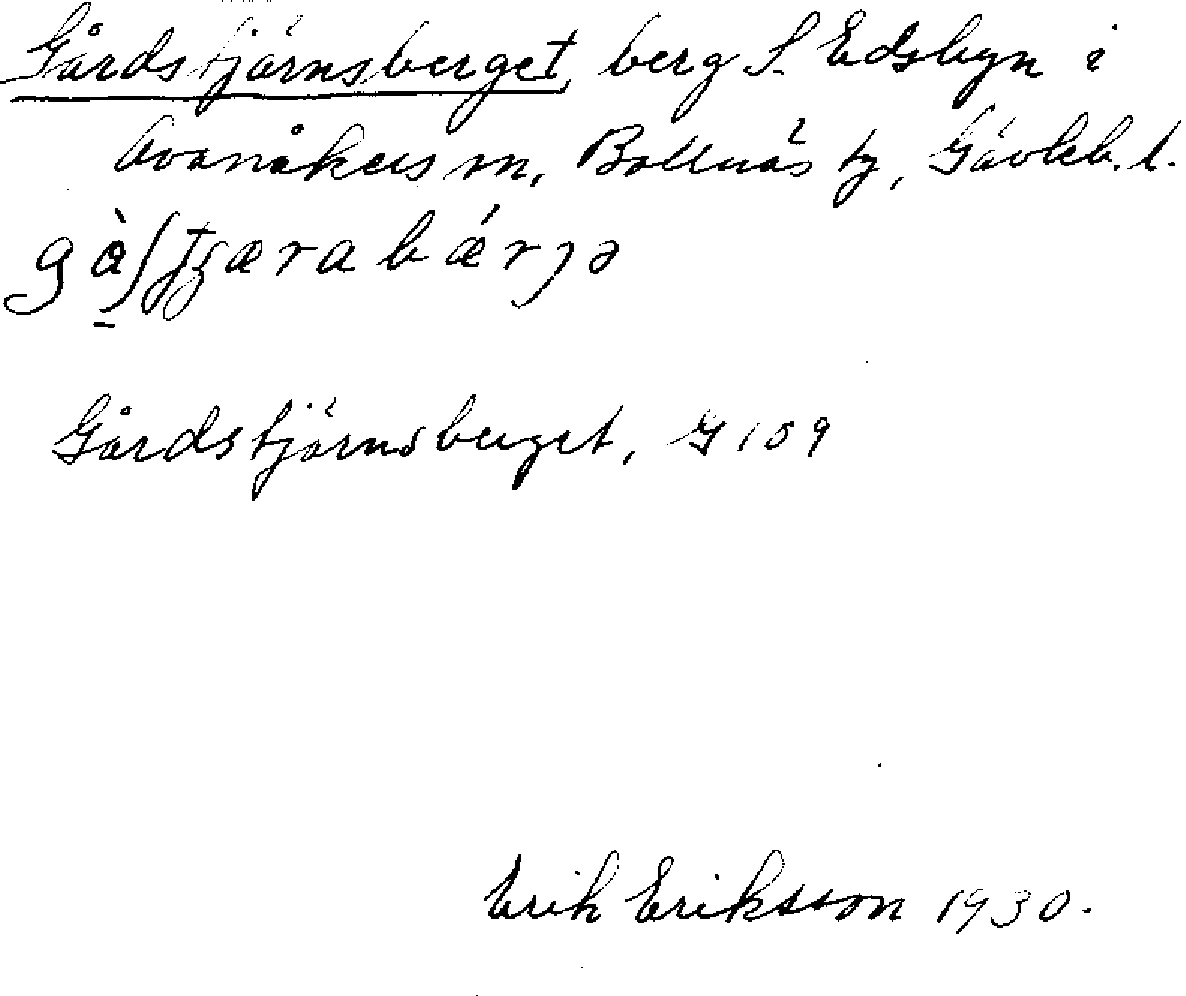 Gårdstjärnsberget, berg S. Edsbyn i
Ovanåkers sn, Bollnäs tg, Gävleb. l.
Gårdstjärnsberget, G 109
Erik Eriksson 1930.